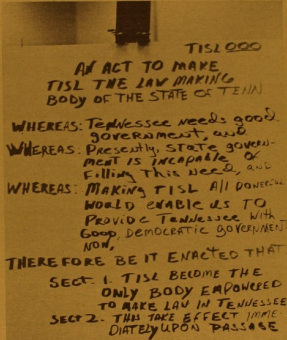 TISL 000
AN ACT TO MAKE
TISL THE LAW MAKING
BODY OF THE STATE OF TENN
WHEREAS: TENNESSEE NEEDS good
government, and
WHEREAS: Presently, STATE govern-
ment is incapable of
filling This need, and
WHEREAS: MAKING TISL All powerful
WORLD ENABLE US TO
PROVIDE TENNESSEE WITH
GOOD, DEMOCRATIC GOVERNMENT
NOW,
THEREFORE BE IT ENACTED THAT
SECT. 1. TISL BECOME THE
ONLY BODY EMPOWERED
TO MAKE LAW IN TENNESSEE
SECT 2. THIS TAKE EFFECT IMME-
DIATELY UPON PASSAGE